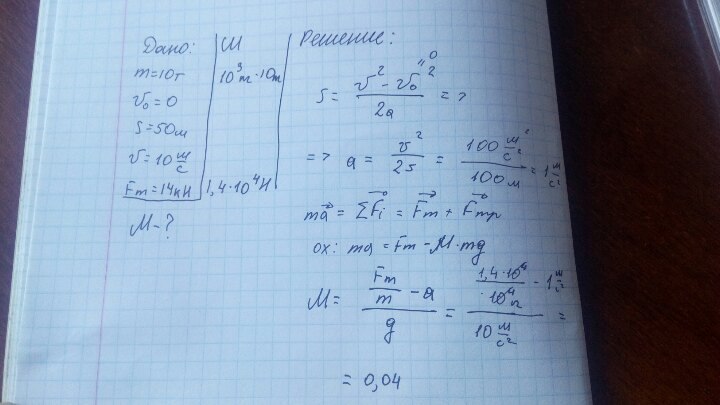 Дано:
m=10т
v₀=0
S=50м
v=10 м/с
Fт=14кН
М-?
СИ
10³m·10m
1,4·10⁴Н
Решение:
S = (v² - v₀²"0)/2a =>
=> a = v²/2s = 100 м²/с² / 100м = 1 м/с²
ma⃗ = ΣF⃗i = F⃗т + F⃗тр
ox: ma = Fт - М·mg
М = (Fт/m - a)/g = (1,4·10⁴/·10⁴ - 1 м/с²)/10 м/с² =
= 0,04